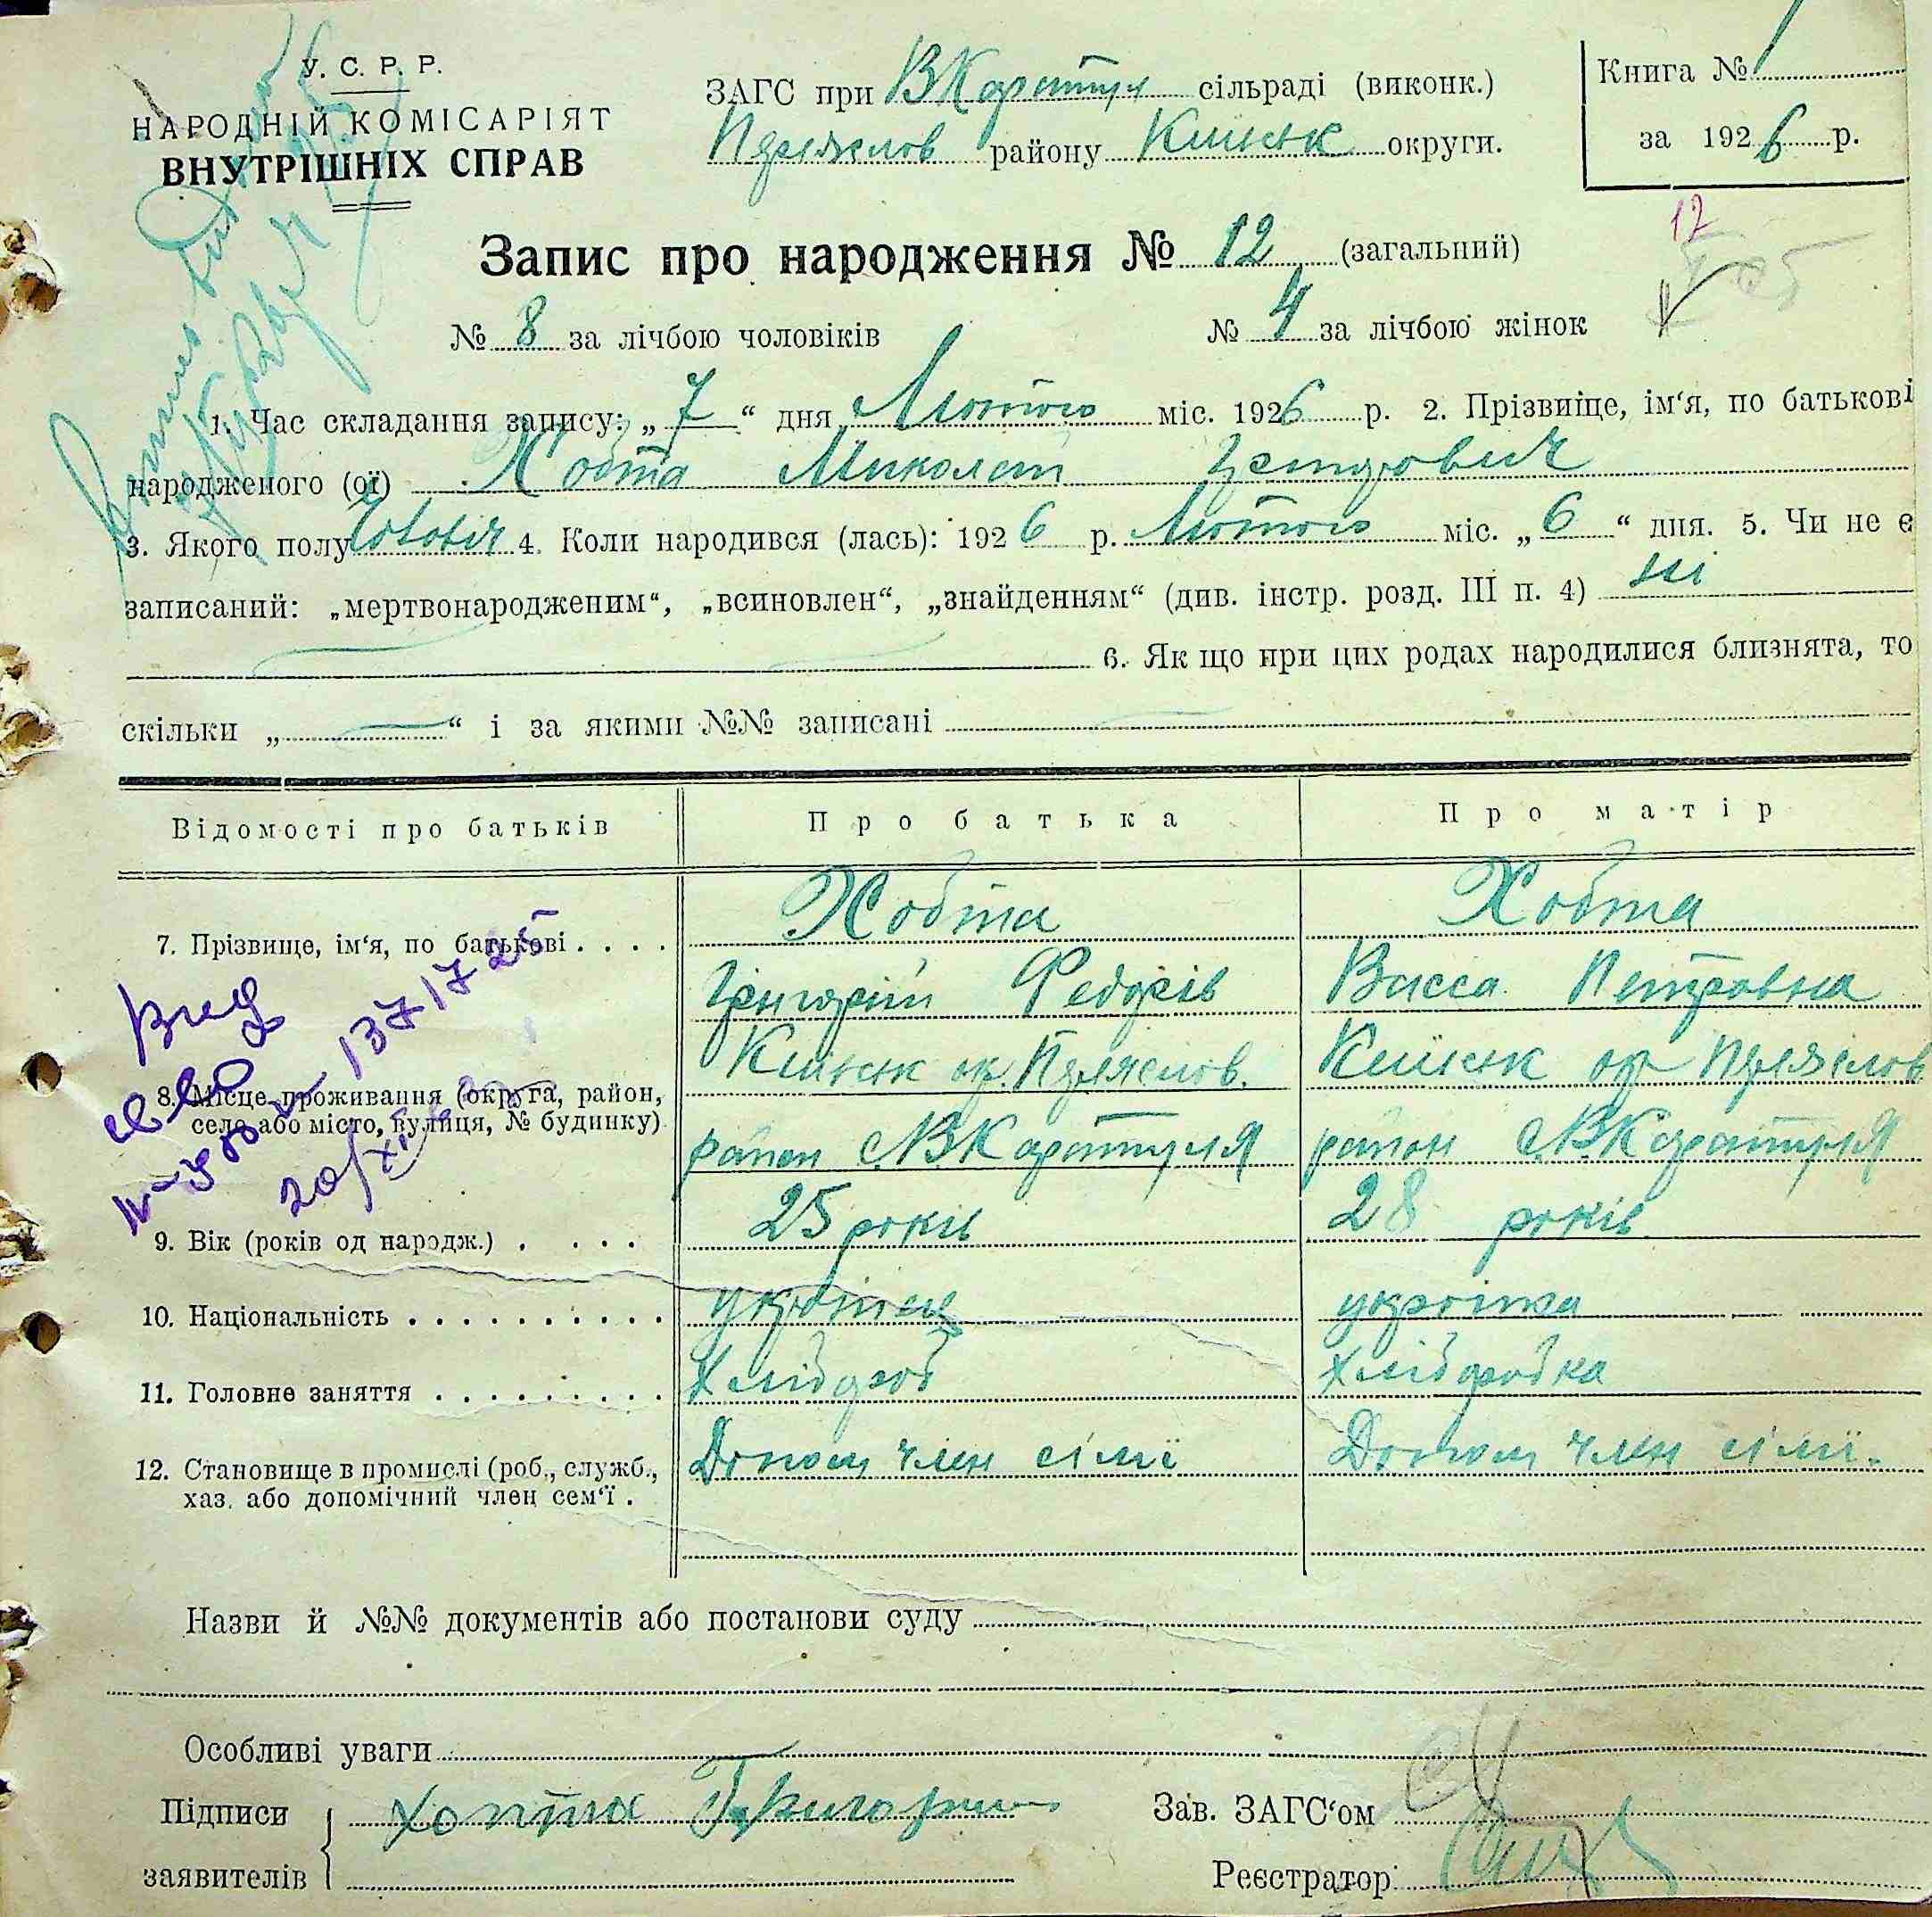 У. С. Р. Р.
НАРОДНІЙ КОМІСАРІЯТ
ВНУТРІШНІХ СПРАВ
ЗАГС при ВКаратул сільраді (виконк.)
Переяслов району Київськ округи.
Книга № 1
за 1926 р.
12
Запис про народження № 12 (загальний)
№ 8 за лічбою чоловіків № 4 за лічбою жінок
1. Час складання запису: „7“ дня Лютого міс. 1926 р. 2. Прізвище, ім‘я, по батькові
народженого (ої) Хобта Миколай
3. Якого полу 4. Коли народився (лась): 1926 р. Лютого міс. „6“ дня. 5. Чи не є
записаний: „мертвонародженим“, „всиновлен“, „знайденням“ (див. інстр. розд. III п. 4) ні
6. Як що при цих родах народилися близнята, то
скільки „ “ і за якими №№ записані
Відомості про батьків Про батька Про матір
7. Прізвище, ім‘я, по батькові . . . . Хобта Хобта
Григорій Федорів Васса Петровна
8. Місце проживання (округа, район, Київськ ок. Переяслов. Київськ ок Переяслов
село або місто, вулиця, № будинку) район с. ВКаратуля район с. ВКаратуля
20/XII
9. Вік (років од народж.) . . . . 25 років 28 років
10. Національність . . . . . . . . . . українец українка
11. Головне заняття . . . . . . . . . Хлібороб хліборобка
12. Становище в промислі (роб., служб., Допом член сімї Допом член сімї.
хаз. або допомічний член сем‘ї .
Назви й №№ документів або постанови суду
Особливі уваги
Підписи хопта Григорий Зав. ЗАГС‘ом
заявителів Реєстратор